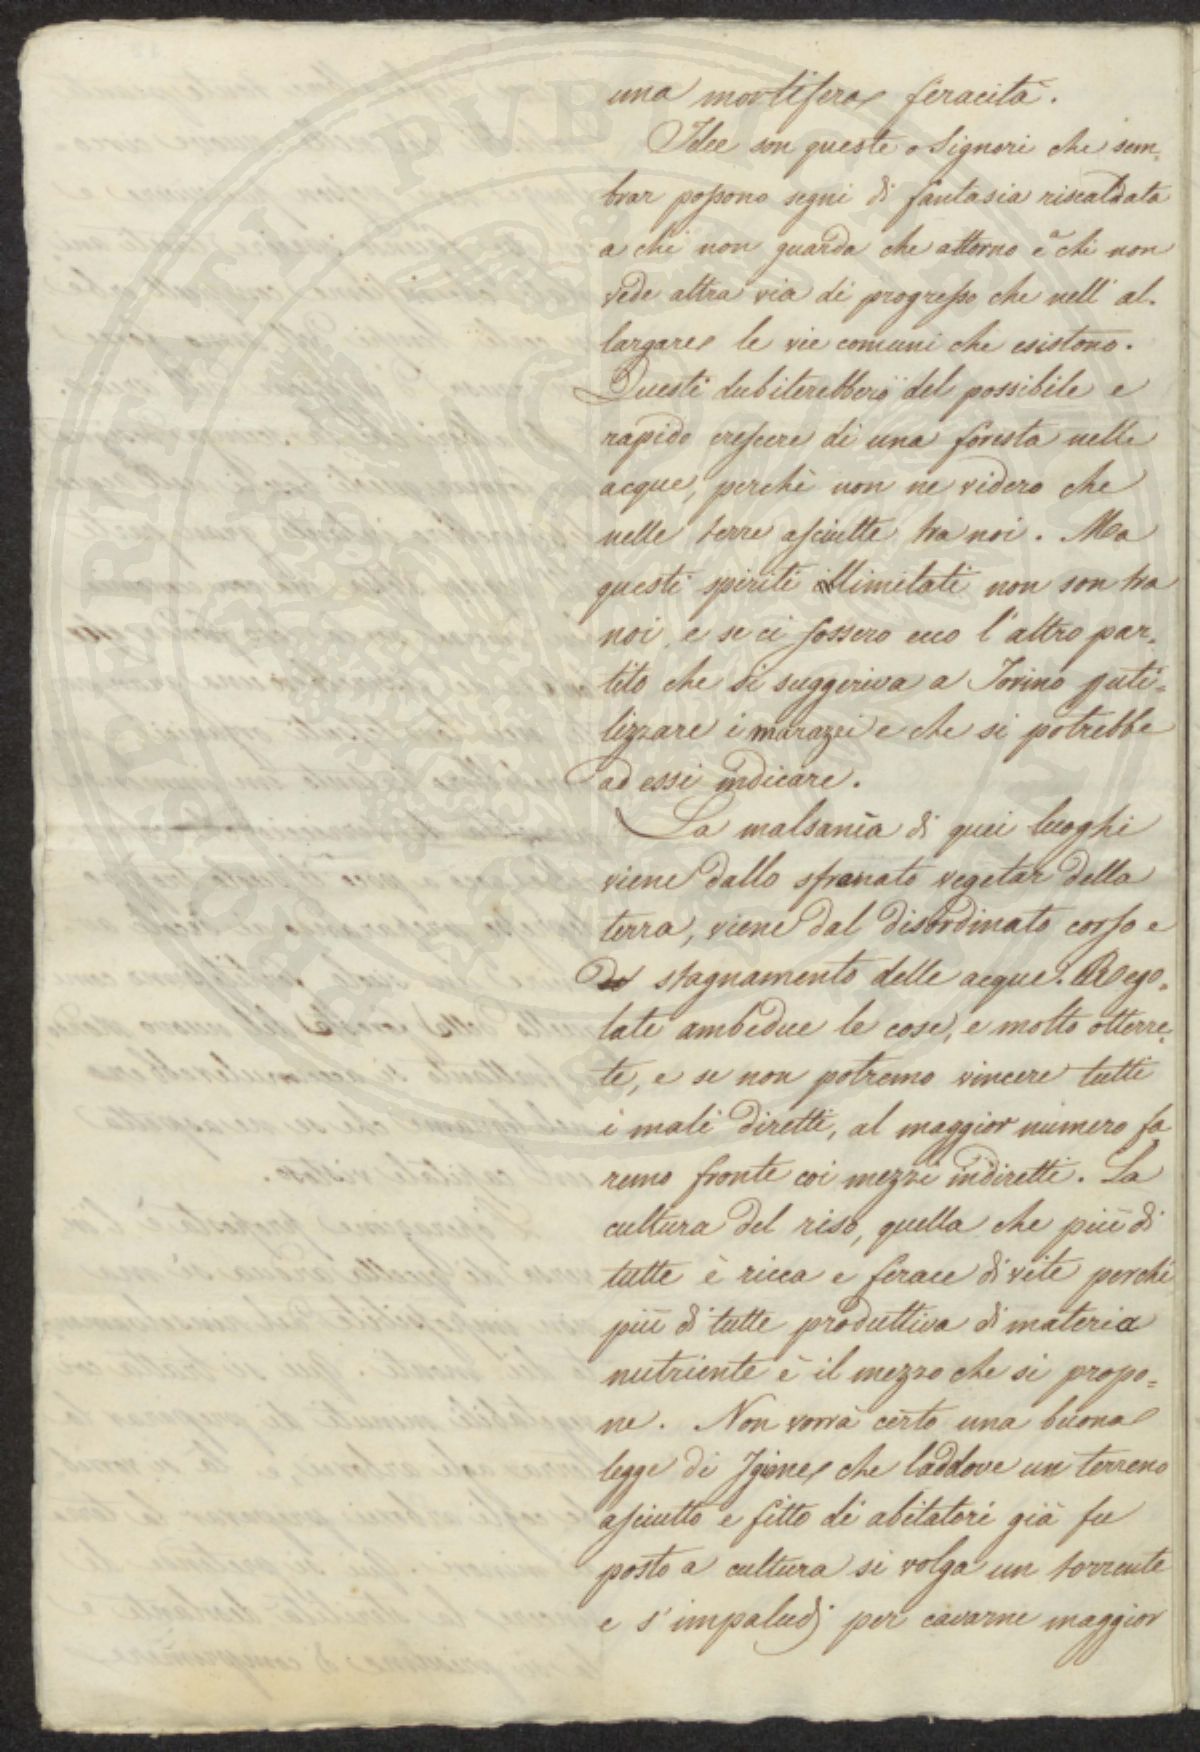 una mortifera feracità.
Idee son queste o Signori che sem-
brar possono segni di fantasia riscaldata
a chi non guarda che attorno e chi non
vede altra via di progresso che nell' al-
largare le vie comuni che esistono.
Questi dubiterebbero del possibile e
rapido crescere di una foresta nelle
acque, perchè non ne videro che
nelle terre asciutte tra noi. Ma
questi spiriti limitati non son tra
noi, e se ci fossero ecco l'altro par-
tito che si suggeriva a Torino uti-
lizzare i marazzi e che si potrebbe
ad essi indicare.
La malsania di quei luoghi
viene dallo sfrenato vegetar della
terra, viene dal disordinato corso e
stagnamento delle acque. Rego-
late ambedue le cose, e molto otterre-
te, e se non potremo vincere tutti
i mali diretti, al maggior numero fa
remo fronte coi mezzi indiretti. La
cultura del riso, quella che più di
tutte è ricca e ferace di vite perchè
più di tutte produttiva di materia
nutriente è il mezzo che si propo-
ne. Non vorrà certo una buona
legge di Igiene che laddove un terreno
asciutto e fitto di abitatori già fu
posto a cultura si volga un torrente
e s'impaludi per cavarne maggior